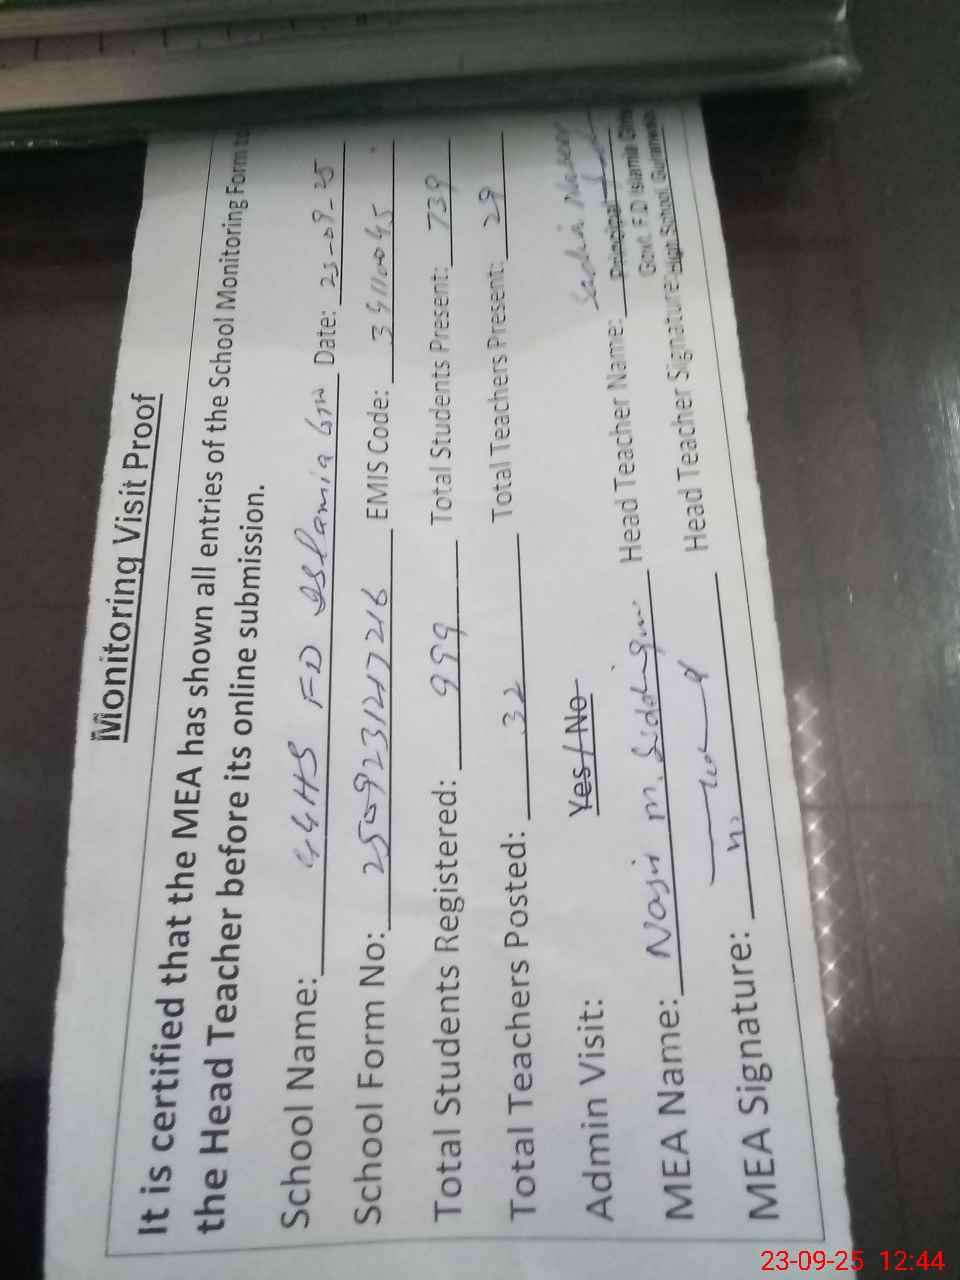 Monitoring Visit Proof
It is certified that the MEA has shown all entries of the School Monitoring Form to
the Head Teacher before its online submission.
School Name: GGHS FD Islamia Grw Date: 23-09-25
School Form No: 2509231217216 EMIS Code: 34110045
Total Students Registered: 999 Total Students Present: 739
Total Teachers Posted: 32 Total Teachers Present: 29
Admin Visit: Yes / No
MEA Name: Nasir M. Siddique Head Teacher Name: Sadia Naseer
Principal
Govt. F.D Islamia Girls
MEA Signature: Head Teacher Signature:
High School, Gujranwala
23-09-25 12:44